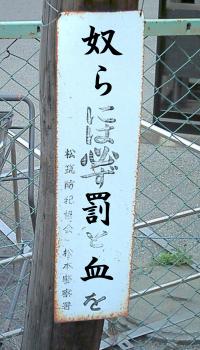 奴らには必ず罰と血を
松筑防犯協会・松本警察署